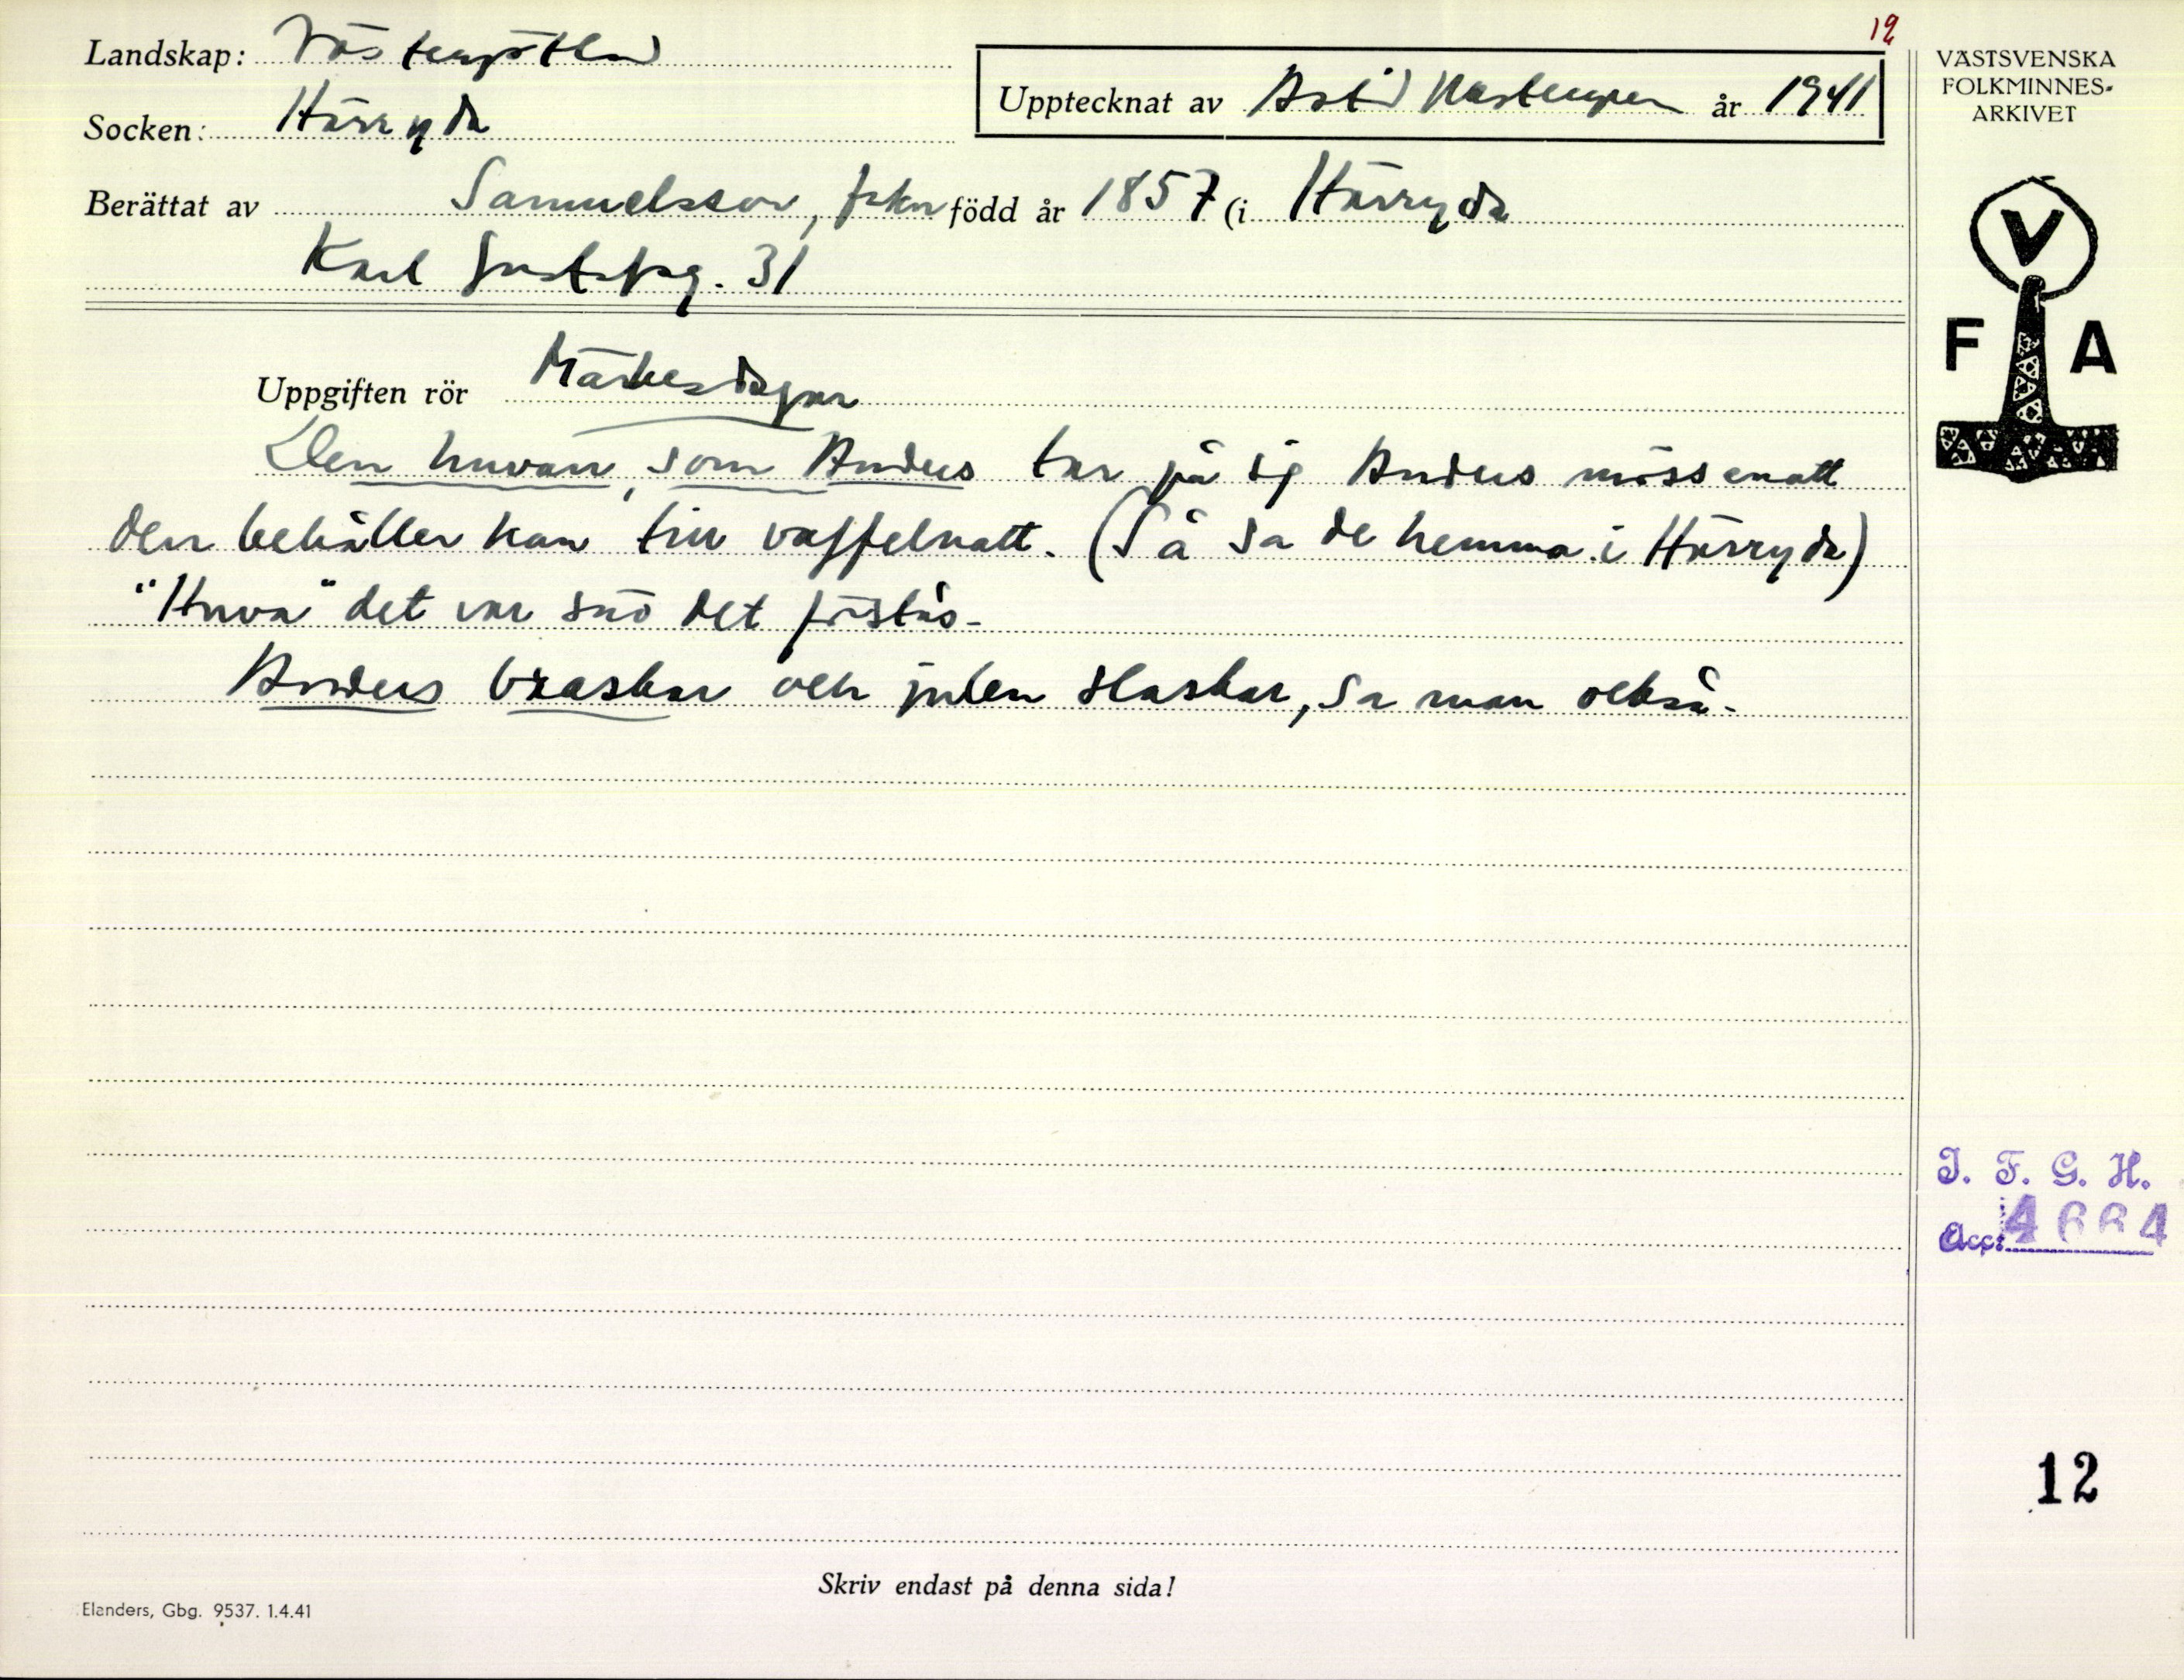 12
Landskap: Västergötland
Socken: Härryda
Upptecknat av Astrid år 1941
VÄSTSVENSKA
FOLKMINNES-
ARKIVET
Berättat av Samuelsson, född år 1857 (i Härryda
Karl Gustafsg. 31
V
F A
Uppgiften rör Märkesdagar
Den huvan, som Anders tar på sig Anders mässenatt
den behåller han till vaffelnatt. (Så sa de hemma i Härryda)
"Huva" det var snö det förstås-
Anders braskar och julen slaskar, sa man också-
I. F. G. H.
Acc: 4664
12
Skriv endast på denna sida!
Elanders, Gbg. 9537. 1.4.41